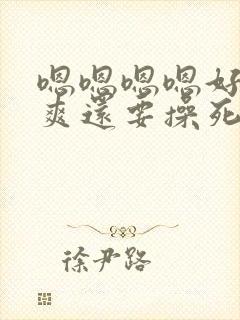 嗯嗯嗯嗯好
爽还要操死
徐尹路